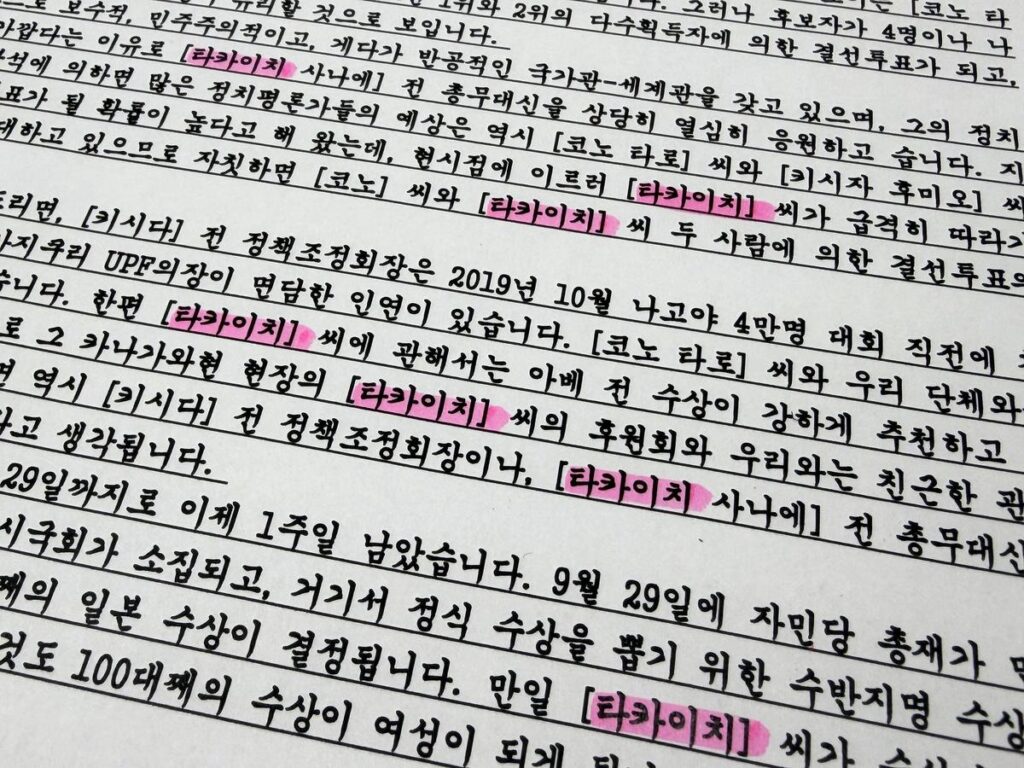 [코노 타
그러나 후보자가 4명이나 나
1위와 2위의 다수획득자에 의한 결선투표가 되고,
유리할 것으로 보입니다.
보수적, 민주주의적이고, 게다가 반공적인 국가관-세계관을 갖고 있으며, 그의 정치
아깝다는 이유로 [타카이치 사나에] 전 총무대신을 상당히 열심히 응원하고 습니다. 지
석에 의하면 많은 정치평론가들의 예상은 역시 [코노 타로] 씨와 [키시자 후미오] 씨
표가 될 확률이 높다고 해 왔는데, 현시점에 이르러 [타카이치] 씨가 급격히 따라
대하고 있으므로 자칫하면 [코노] 씨와 [타카이치] 씨 두 사람에 의한 결선투표의
드리면, [키시다] 전 정책조정회장은 2019년 10월 나고야 4만명 대회 직전에
마지우리 UPF의장이 면담한 인연이 있습니다. [코노 타로] 씨와 우리 단체와
습니다. 한편 [타카이치] 씨에 관해서는 아베 전 수상이 강하게 추천하고
로 그 카나가와현 현장의 [타카이치] 씨의 후원회와 우리와는 친근한 관
면 역시 [키시다] 전 정책조정회장이나, [타카이치 사나에] 전 총무대신
라고 생각됩니다.
29일까지로 이제 1주일 남았습니다. 9월 29일에 자민당 총재가
시국회가 소집되고, 거기서 정식 수상을 뽑기 위한 수반지명 수상
째의 일본 수상이 결정됩니다. 만일 [타카이치] 씨가 수상
것도 100대째의 수상이 여성이 되게